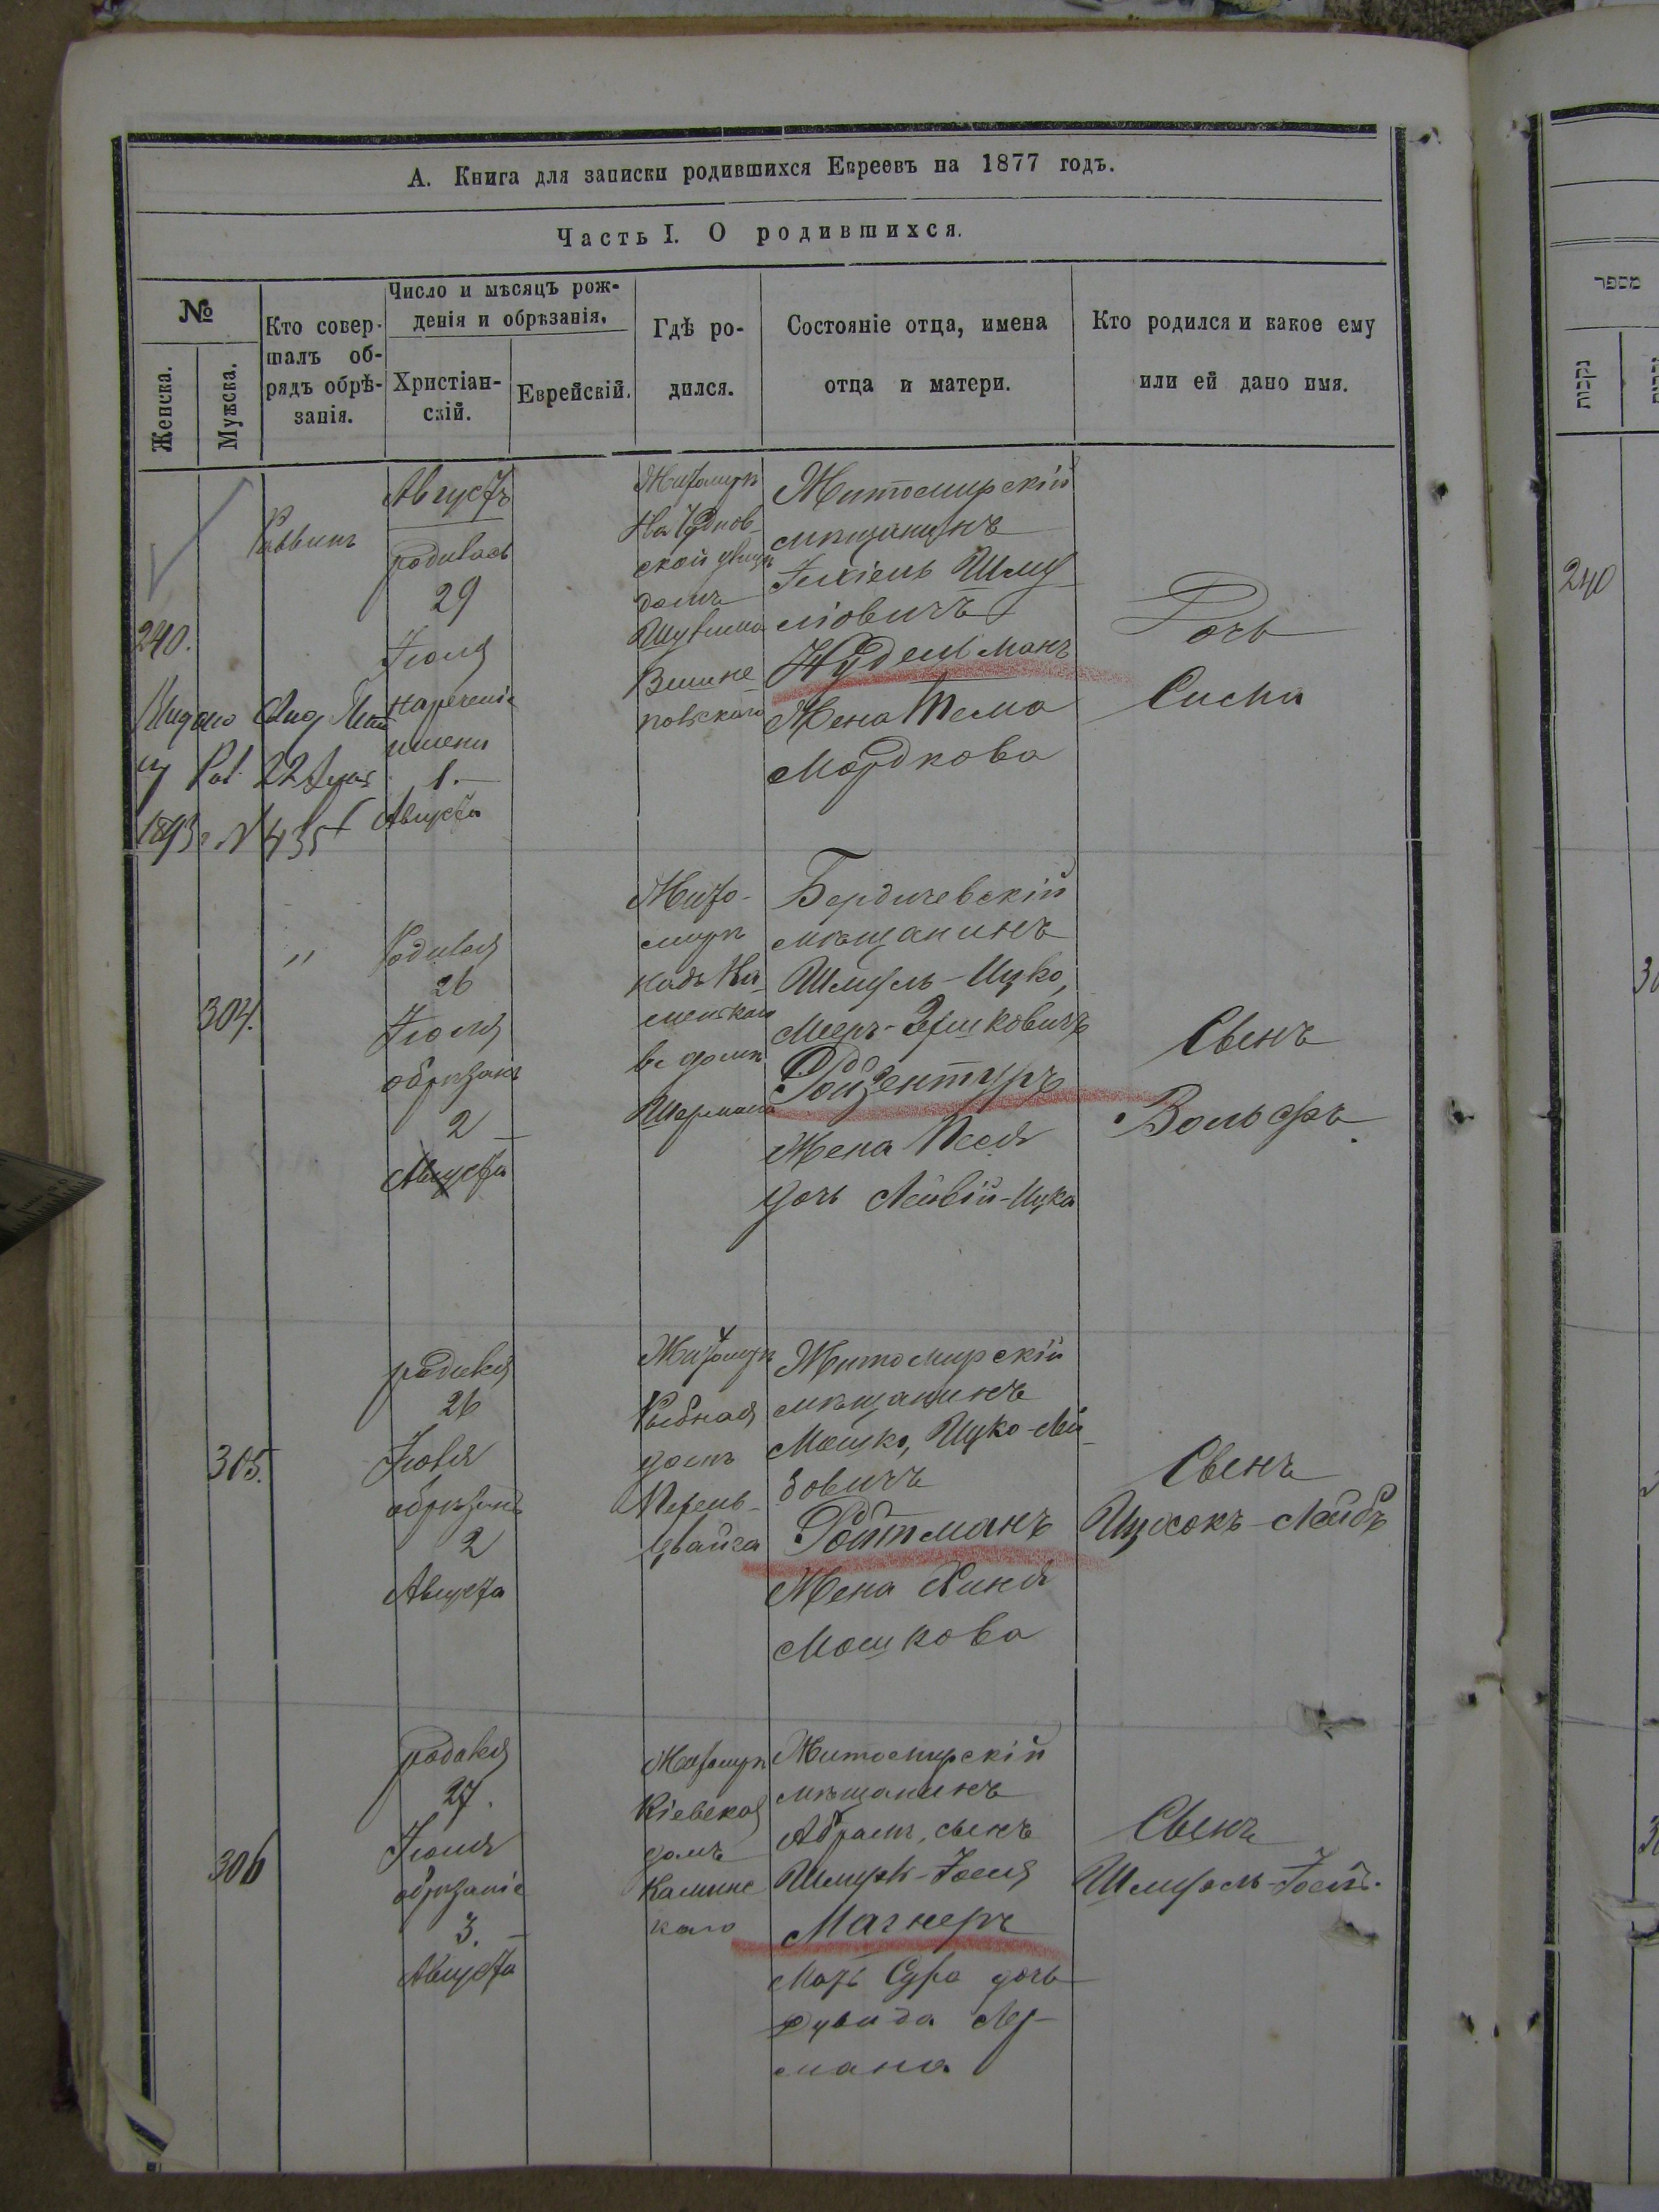 А. Книга для записки родившихся Евреевъ на 1877 годъ.
Часть I. О родившихся.
№
Женска.
Мужска.
Кто совер-
шалъ об-
рядъ обрѣ-
занія.
Число и мѣсяцъ рож-
денія и обрѣзанія.
Христіан-
скій.
Еврейскій.
Гдѣ ро-
дился.
Состояніе отца, имена
отца и матери.
Кто родился и какое ему
или ей дано имя.
240.
Раввинъ
Августъ
родилась
29
Іюля
нареченіе
имени
1.
Августа
Житомиръ
На Чуднов-
ской улицѣ
домъ
Житомирскій
мѣщанинъ
Іехіель Шму
ліовичъ
Нудельманъ
Жена Тема
Мордкова
Дочь
22
1893 г. №
304.
"
Родился
26
Іюля
обрѣзанъ
2
Августа
Жито-
миръ
надъ Ка-
менкою
въ домѣ
Шермана
Бердичевскій
мѣщанинъ
Шмуль-Ицко,
Мееръ-Гершковичъ
Ройзентуръ
Жена Песя
дочь Лейвій-Ицка
Сынъ
Вольфъ.
305.
родился
26
Іюля
обрѣзанъ
2
Августа
Житомиръ
Рыбная
домъ
Перель-
цвайга
Житомирскій
мѣщанинъ
Мошко, Ицко-Лей-
зовичъ
Ройтманъ
Жена Хиня
Мошкова
Сынъ
Ицхокъ-Лейбъ
306
родился
27.
Іюля
обрѣзаніе
3.
Августа
Житомиръ
Кіевская
домъ
Каминс
каго
Житомирскій
мѣщанинъ
Абрамъ, сынъ
Шмуль-Іося
Магнеръ
Мать Сура дочь
Дувида Лер-
мана
Сынъ
Шмуель-Іосиъ.
מספר
נקבות
240